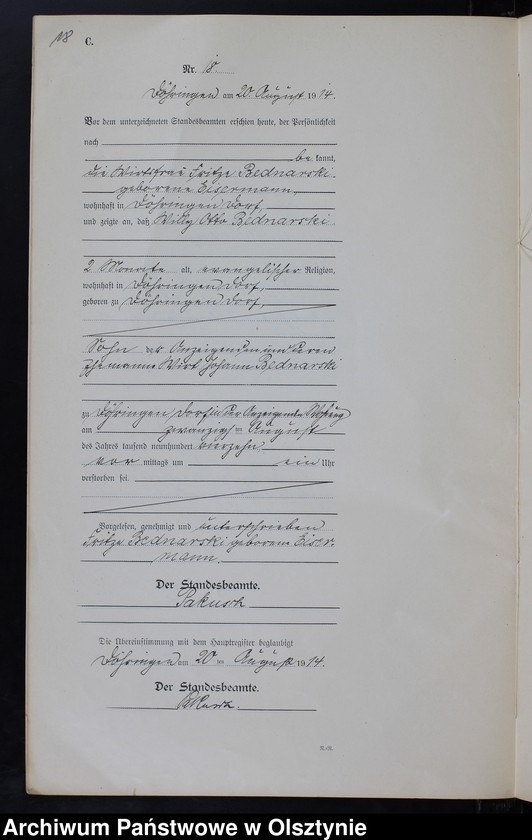 18
C.
Nr. 18
Döhringen am 20. August 1914.
Vor dem unterzeichneten Standesbeamten erschien heute, der Persönlichkeit
nach
be kannt,
die Wirtsfrau Fritze Bednarski
geborene Eisermann
wohnhaft in Döhringen Dorf,
und zeigte an, daß Willy Otto Bednarski
2 Monate alt, evangelischer Religion,
wohnhaft in Döhringen Dorf,
geboren zu Döhringen Dorf,
Sohn der Anzeigenden und deren
Ehemanns Wirt Johann Bednarski
zu Döhringen Dorf in der Anzeigenden
am zwanzigsten August
des Jahres tausend neunhundert vierzehn
vor mittags um ein Uhr
verstorben sei.
Vorgelesen, genehmigt und unterschrieben
Fritze Bednarski geborene Eiser-
mann.
Der Standesbeamte.
Pakusch
Die Übereinstimmung mit dem Hauptregister beglaubigt
Döhringen am 20 ten August 1914.
Der Standesbeamte.
Pakusch
Archiwum Państwowe w Olsztynie